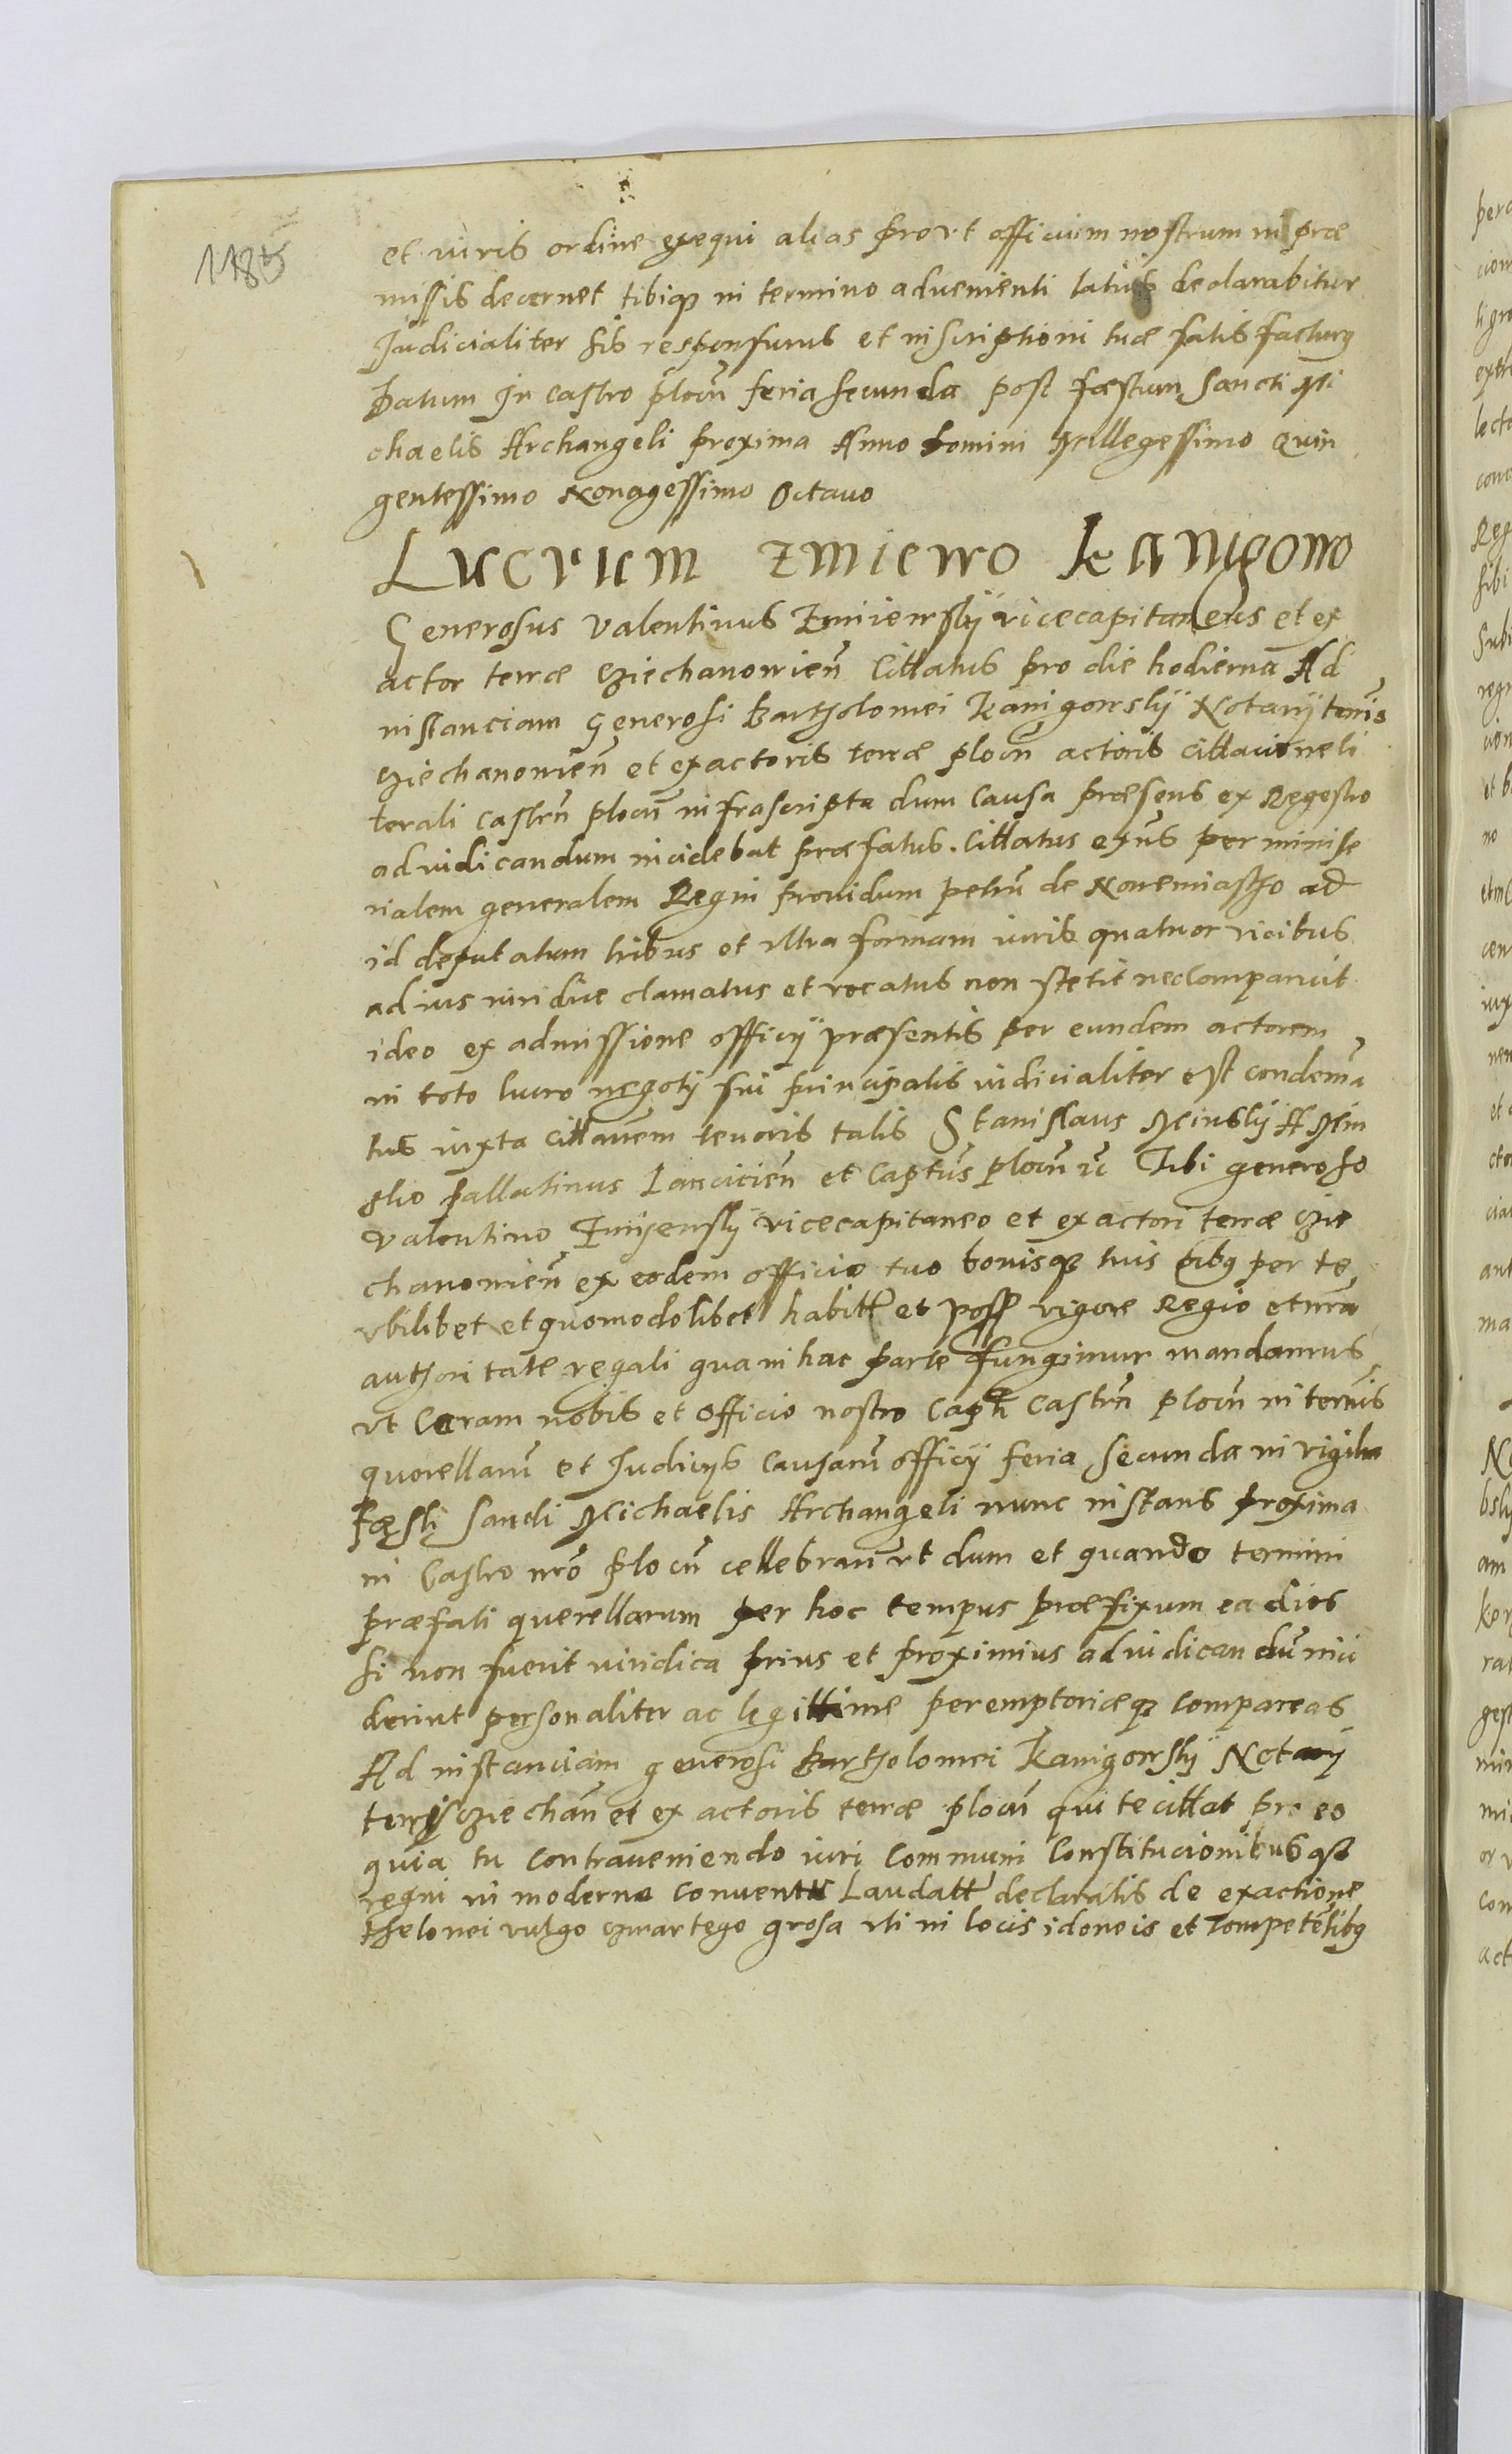 1185
et iuris ordine exequi alias prout officium nostrum in præ
missis decernet tibique in termino advenienti latius declarabitur
Judicialiter sis responsurus et inscriptioni tuæ satisfacturus
Datum In Castro plocn feria secunda post fæstum Sancti Mi
chaelis Archangeli proxima Anno Domini Millegessimo Quin
gentessimo Nonagessimo Octauo
Lucrum Zmiewo Kanigowo
Generosus Valentinus Zmiewsky vicecapitaneus et ex
actor terræ Cziechanowien Cittatus pro die hodierna Ad
instanciam Generosi Bartholomei Kanigowsky Notarÿ terris
Cziechanowien et exactoris terræ plocn actoris cittacione li
terali Castrn plocn infrascripta dum Causa præsens ex Regestro
ad iudicandum incidebat præfatus. Cittatus exns perministe
rialem generalem Regni prouidum petrum de Nonemiastho ad
id deputatum tribus et vltra formam iuris quatuor vicibus
ad ius iuridice clamatus et vocatus non stetit nec Comparuit
ideo ex admissione officÿ præsentis per eundem actorem
in toto lucro negotÿ sui principalis iudicialiter est condemna
tus iuxta cittanem tenoris talis Stanislaus Minsky A Min
sko pallatinus Lancicien et Captus plocn etc Tibi generoso
Valentino Zmijewsky vicecapitaneo et exactori terræ Czie
chanowien ex eodem officio tuo bonisque tuis oibus per te
vbilibet et quomodolibet habitt et poss vigore Regio et nra
authoritate regali qua in hac parte fungimur mandamus
vt Coram nobis et Officio nostro Captli Castrn plocn in ternis
querellarum et Judicÿs Causarum officÿ feria secunda in vigilia
Fæsti Sancti Michaelis Archangeli nunc instans proxima
in Castro nro plocn cellebran vt dum et quando termini
præfati querellarum per hoc tempus præfixum ea dies
si non fuerit iuridica prius et proximius ad iudicandum inci
derint personaliter ac legittime peremptoriæque compareas
Ad instanciam generosi Bartholomei Kanigowsky Notarÿ
terris Cziechan et exactoris terræ plocn qui te cittat pro eo
quia tu contraueniendo iuri Communi Constitucionibusque
regni in moderno conuentu Laudatt declaratis de exactione
thelonei vulgo czwartego grosa vti in locis idoneis et Competentibus